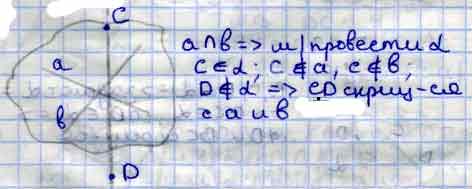 C
a
в
D
a∩в => м/провести α
C∈α; C∉a, C∉в;
D∉α => CD скрещ-ся
с a и в